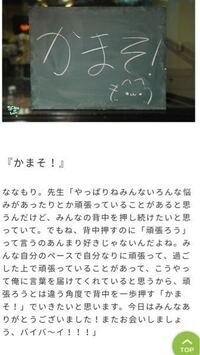 かまそ!
『かまそ！』
ななもり。先生「やっぱりねみんないろんな悩
みがあったりとか頑張っていることがあると思
うんだけど、みんなの背中を押し続けたいと思
っていて。でもね、背中押すのに「頑張ろう」
って言うのあんまり好きじゃないんだよね。み
んな自分のペースで自分なりに頑張って、過ご
した上で頑張っていることがあって、こうやっ
て俺に言葉を届けてくれていると思うから、頑
張ろうとは違う角度で背中を一歩押す「かま
そ！」でいきたいと思います。今日はみんなあ
りがとうございました！またお会いしましょ
う、バイバ〜イ！！！」
TOP